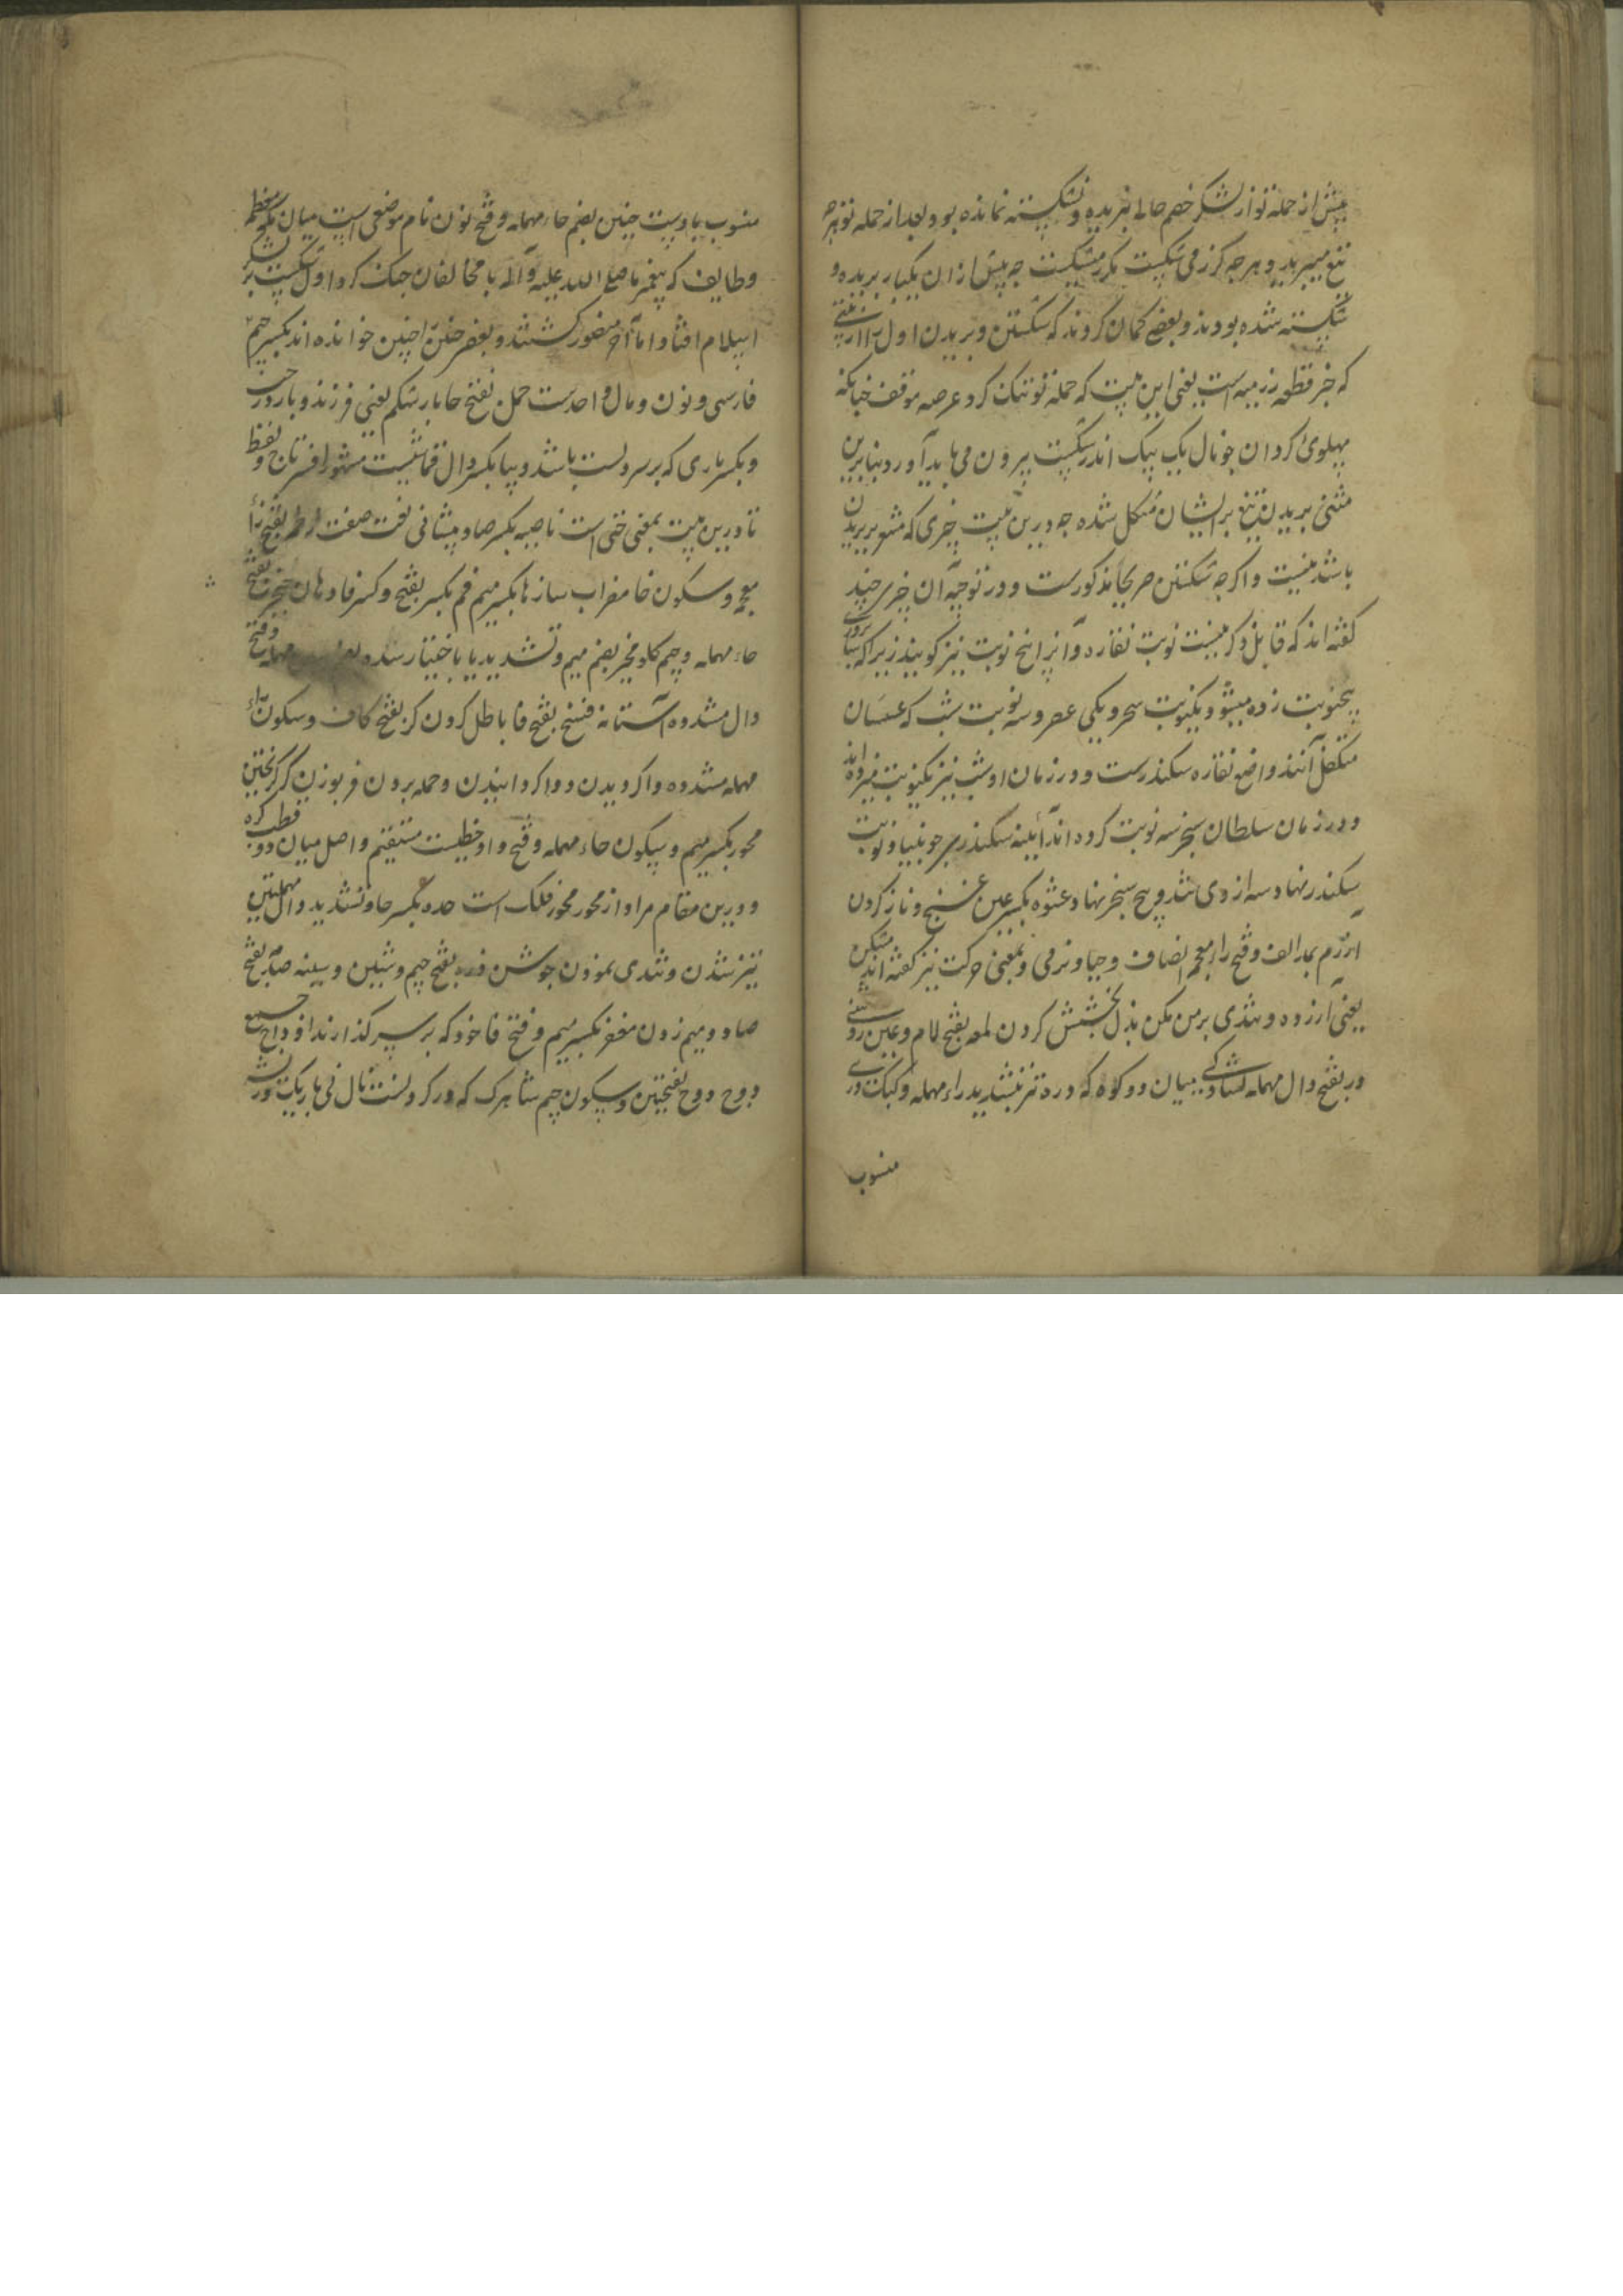 پیش از حمله تو از لشکر خصم حالی نبریده و نشکسته نمانده بود و بعد از حمله تو هرچه
تیغ میبرید و هر چه گرز می شکست مکرر میشکست چه پیش از ان یکبار بریده و
شکسته شده بودند و بعضی کمان کردند که شکستن و بریدن اول را از
که خبر قطعه رزمیه است یعنی این بیت که حمله تو تنک کرد عرصه موقف چنانکه
پهلوی کردان چو نال یک بیک اندر شکست بیرون می باید آورد بنابرین
مثنی بریدن تیغ بر ایشان مشکل شده چه درین بیت چیزی که مشعر بریدن
باشد نیست و اکرچه شکستن صریحا مذکورست و در توجیه آن چیزی چند
کفته اند که قابل ذکر نیست نوبت نقاره و آنرا پنج نوبت نیز کویند زیرا که
پنجنوبت زده میشود یکنوبت سحر و یکی عصر و سه نوبت شب که عسسان
متکفل آنند واضع نقاره سکندرست و در زمان او شب نیز یکنوبت میزده اند
و در زمان سلطان سنجر سه نوبت کرده اند آیینه سکندر
سکندر نهاد سه از وی شد و پنج سنجر نهاد عشوه بکسر عین غنج و ناز کردن
آزرم بمد الف و فتح زاء معجمه انصاف و حیا و نرمی و بمعنی حرکت نیز کفته اند
یعنی آزرده و تندی بر من مکن بذل بخشش کردن لمعه بفتح لام و عین روشنی
در بفتح دال مهمله کشادگی میان دو کوه که دره نیز بتشدید راء مهمله و کبک دری
منسوب
منسوب باوست حنین بضم حاء مهمله و فتح نون نام موضعی است میان مکه معظمه
و طایف که پیغمبر ما صلی الله علیه و آله با مخالفان جنک کرد اول شکست بر لشکر
اسلام افتاد اما آخر منصور کشتند و بعضی حنین را چنین خوانده اند بکسر جیم
فارسی و نون و مال واحدست حمل بفتح حا بار شکم یعنی فرزند و بار درخت
و بکسر باری که بر سر و پشت باشد دیبا بکسر دال قماشیست مشهور افسر تاج و لفظ
تا درین بیت بمعنی حتی است ناصیه بکسر صاد پیشانی نعت صفت زخمه بفتح زاء
معجمه و سکون خا مضراب سازها بکسر میم فم بکسر بفتح و کسر فا دهان حنجره بفتح
حاء مهمله و جیم کلو مخیر بضم میم و تشدید یا با ختیار سده بضم سین مهمله و فتح
دال مشدده آستانه فسخ بفتح فا باطل کردن کر بفتح کاف و سکون راء
مهمله مشدده واکردیدن و واکردانیدن و حمله بردن فر بوزن کر کریختن
محور بکسر میم و سکون حاء مهمله و فتح واو خطیست مستقیم واصل میان دو قطب کره
و درین مقام مراد از محور محور فلک است حده بکسر حا و تشدید دال مهملتین
تیز شدن و تندی نمودن جوشن زره بفتح جیم و شین و سینه صدر بفتح
صاد و میم زدن مغفر بکسر میم و فتح فا خود که بر سر کذارند اوداج جمع
ودج ودج بفتحتین و سکون جیم شاهرک که در کردنست نال نی باریک